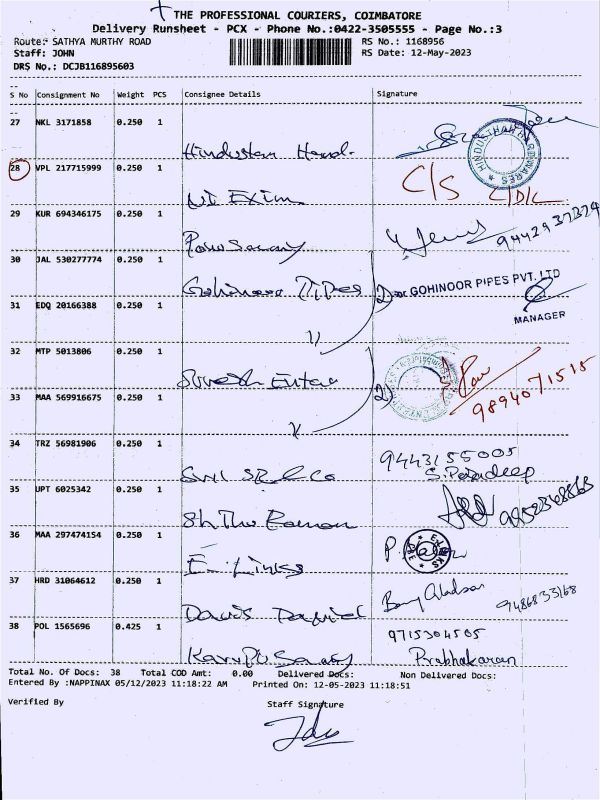 THE PROFESSIONAL COURIERS, COIMBATORE
Delivery Runsheet - PCX - Phone No.:0422-3505555 - Page No.:3
Route: SATHYA MURTHY ROAD RS No.: 1168956
Staff: JOHN RS Date: 12-May-2023
DRS No.: DCJB116895603
S No Consignment No Weight PCS Consignee Details Signature
27 NKL 3171858 0.250 1
Hindustan Hard.
HINDUSTHAN HARDWARES
28 VPL 217715999 0.250 1
C/S
NI Exim
29 KUR 694346175 0.250 1
30 JAL 530277774 0.250 1
Gohinoor Pipes 2) For GOHINOOR PIPES PVT. LTD
31 EDQ 20166388 0.250 1
MANAGER
32 MTP 5013806 0.250 1
Suresh Enter 2)
9894071515
33 MAA 569916675 0.250 1
34 TRZ 56981906 0.250 1
9443155005
S. Pradeep
35 UPT 6025342 0.250 1
36 MAA 297474154 0.250 1
E. Links
37 HRD 31064612 0.250 1
9486833168
38 POL 1565696 0.425 1
9715304505
Karupusamy Prabhakaran
Total No. Of Docs: 38 Total COD Amt: 0.00 Delivered Docs: Non Delivered Docs:
Entered By :NAPPINAX 05/12/2023 11:18:22 AM Printed On: 12-05-2023 11:18:51
Verified By Staff Signature